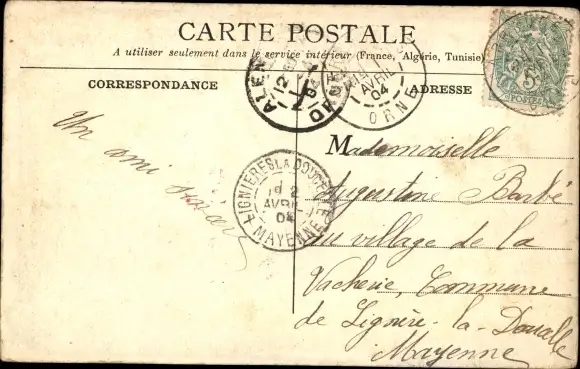 CARTE POSTALE
A utiliser seulement dans le service intérieur (France, Algérie, Tunisie)
CORRESPONDANCE
ADRESSE
ALEN
12
04
AVRIL
04
ORNE
5c
POSTES
Un ami
LIGNIERES LA DOUCELLE
2
AVRIL
04
MAYENNE
Mademoiselle
Augustine Barbé
au village de la
Vacherie, Commune
de Lignère-la-Doucelle
Mayenne